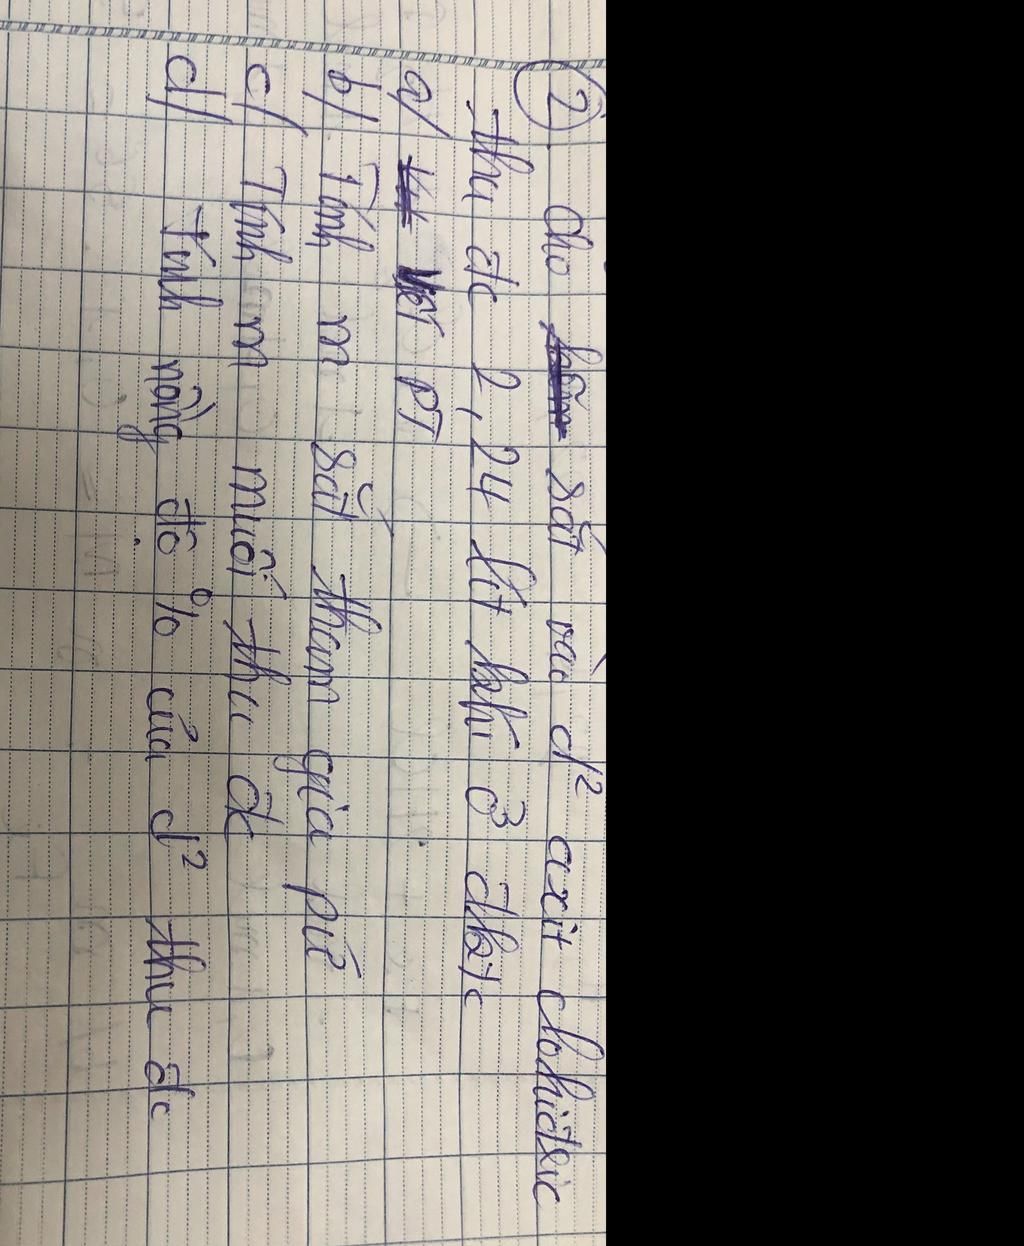 2. Cho sắt vào d² axit clohiđric
thu đc 2,24 lít khí ở đktc
a/ Viết PT
b/ Tính m sắt tham gia pứ
c/ Tính m muối thu đc
d/ Tính nồng độ % của d² thu đc